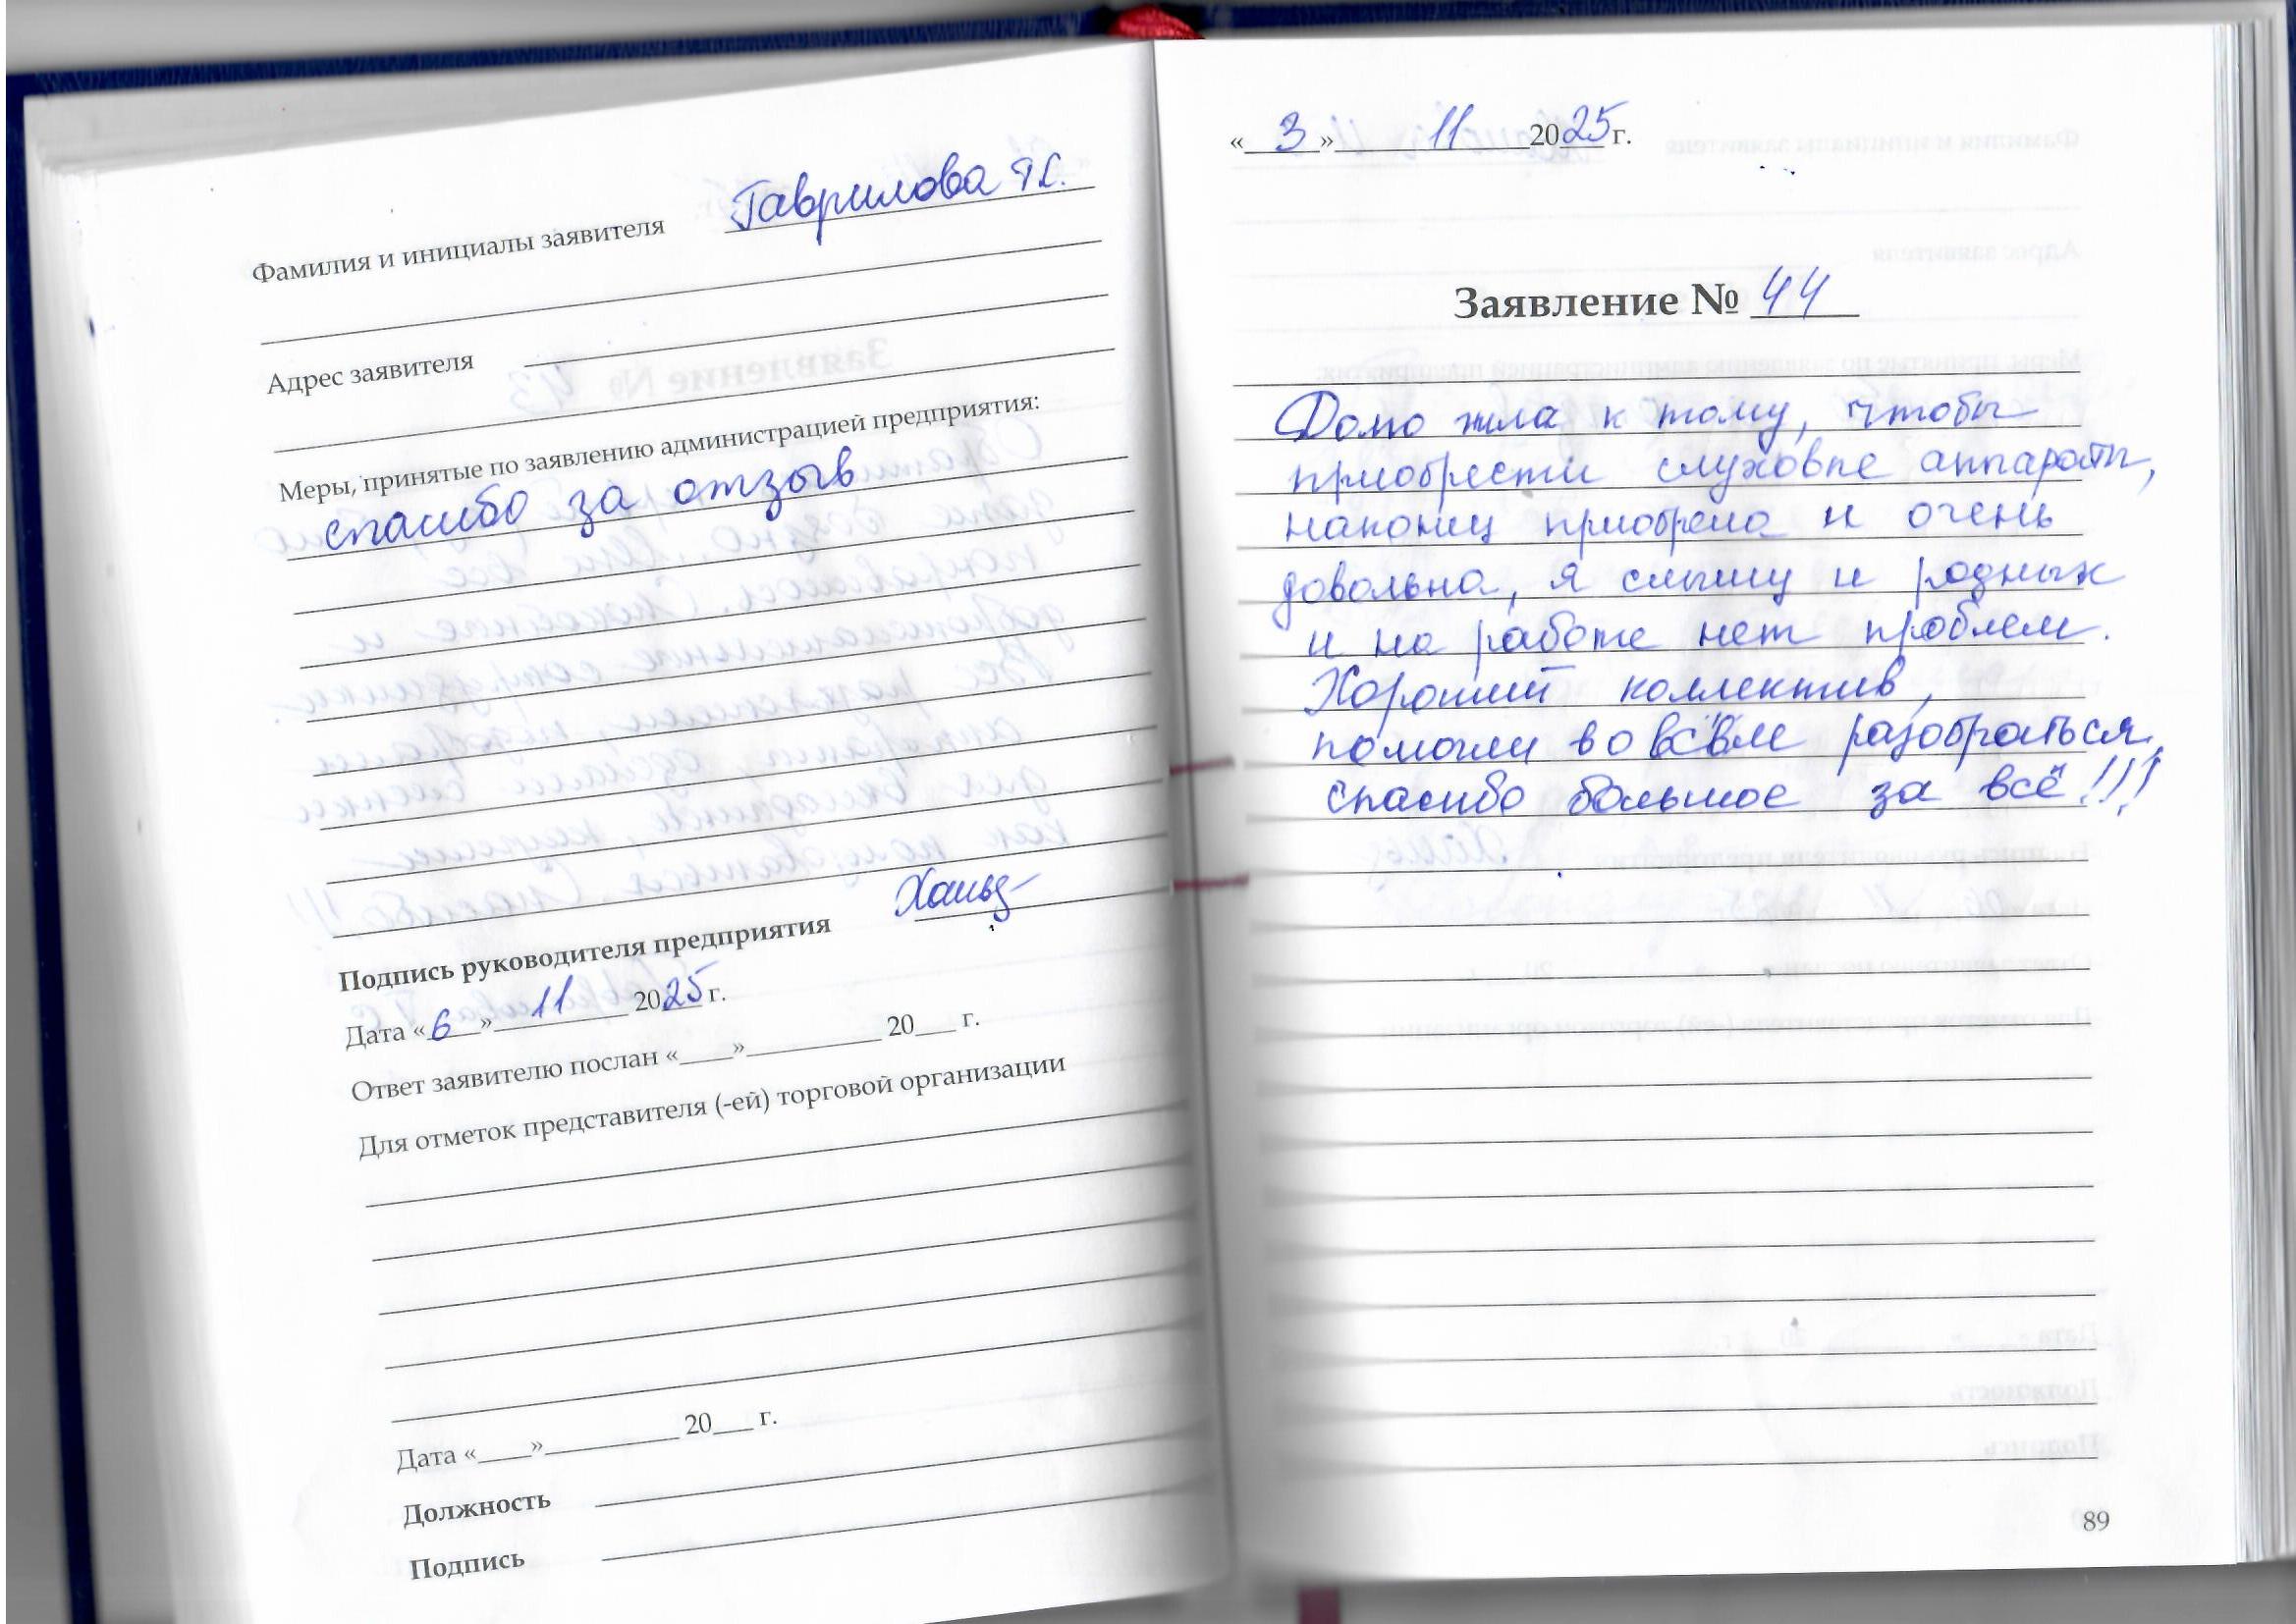 Фамилия и инициалы заявителя Гаврилова Т.С.
Адрес заявителя
Меры, принятые по заявлению администрацией предприятия:
спасибо за отзыв
Подпись руководителя предприятия
Дата «6» 11 2025 г.
Ответ заявителю послан «____»__________ 20___ г.
Для отметок представителя (-ей) торговой организации
Дата «____»__________ 20___ г.
Должность
Подпись
«3» 11 2025 г.
Заявление № 44
Долго шла к тому, чтобы
приобрести слуховые аппараты,
наконец приобрела и очень
довольна, я слышу и родных
и на работе нет проблем.
Хороший коллектив,
помогли во всём разобраться,
спасибо большое за всё!!!
89